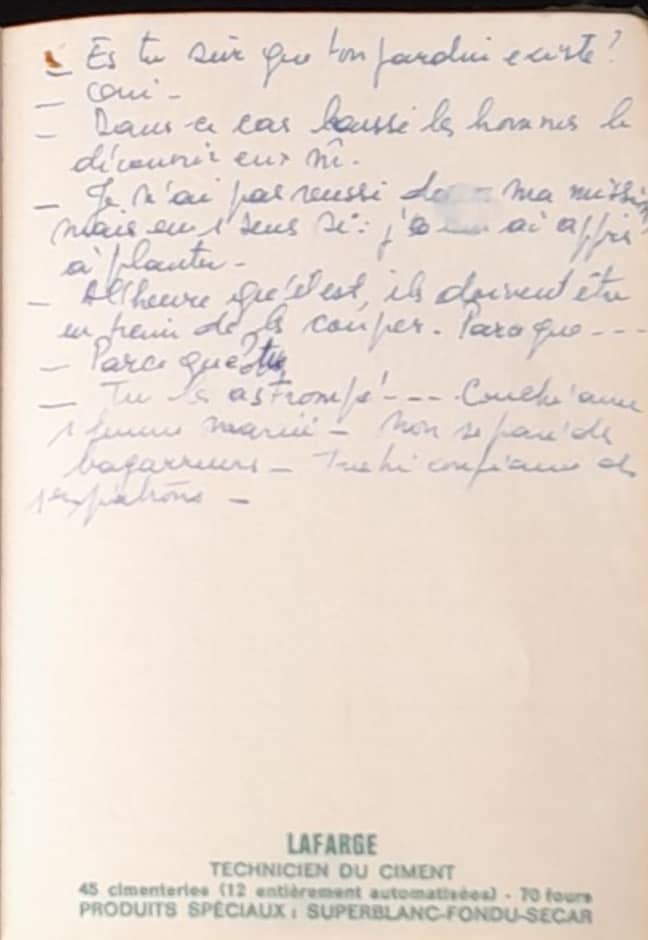 - Es tu sûr que ton jardin existe?
- Oui -
- Dans ce cas laisse les hommes le
découvrir eux m̂.
- Je n'ai pas reussi ma mission
mais en 1 sens si: j' ai appris
à planter -
- A l'heure qu'il est, ils doivent être
en train de la couper. Parce que ---
- Parce que?
- Tu as trompé --- Couché avec
1 femme mariée - Non séparé des
bagarreurs - Trahi confiance de
ses patrons -
LAFARGE
TECHNICIEN DU CIMENT
45 cimenteries (12 entièrement automatisées) - 70 fours
PRODUITS SPÉCIAUX : SUPERBLANC-FONDU-SECAR